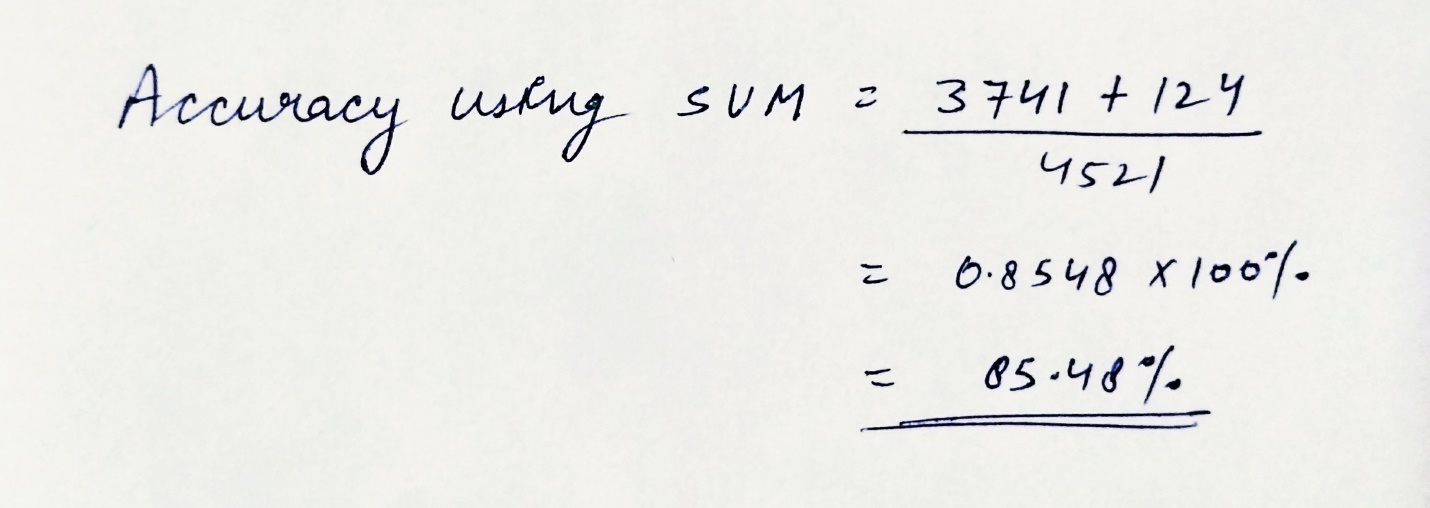 Accuracy using SVM = 3741 + 124
4521
= 0.8548 x 100%.
= 85.48%.